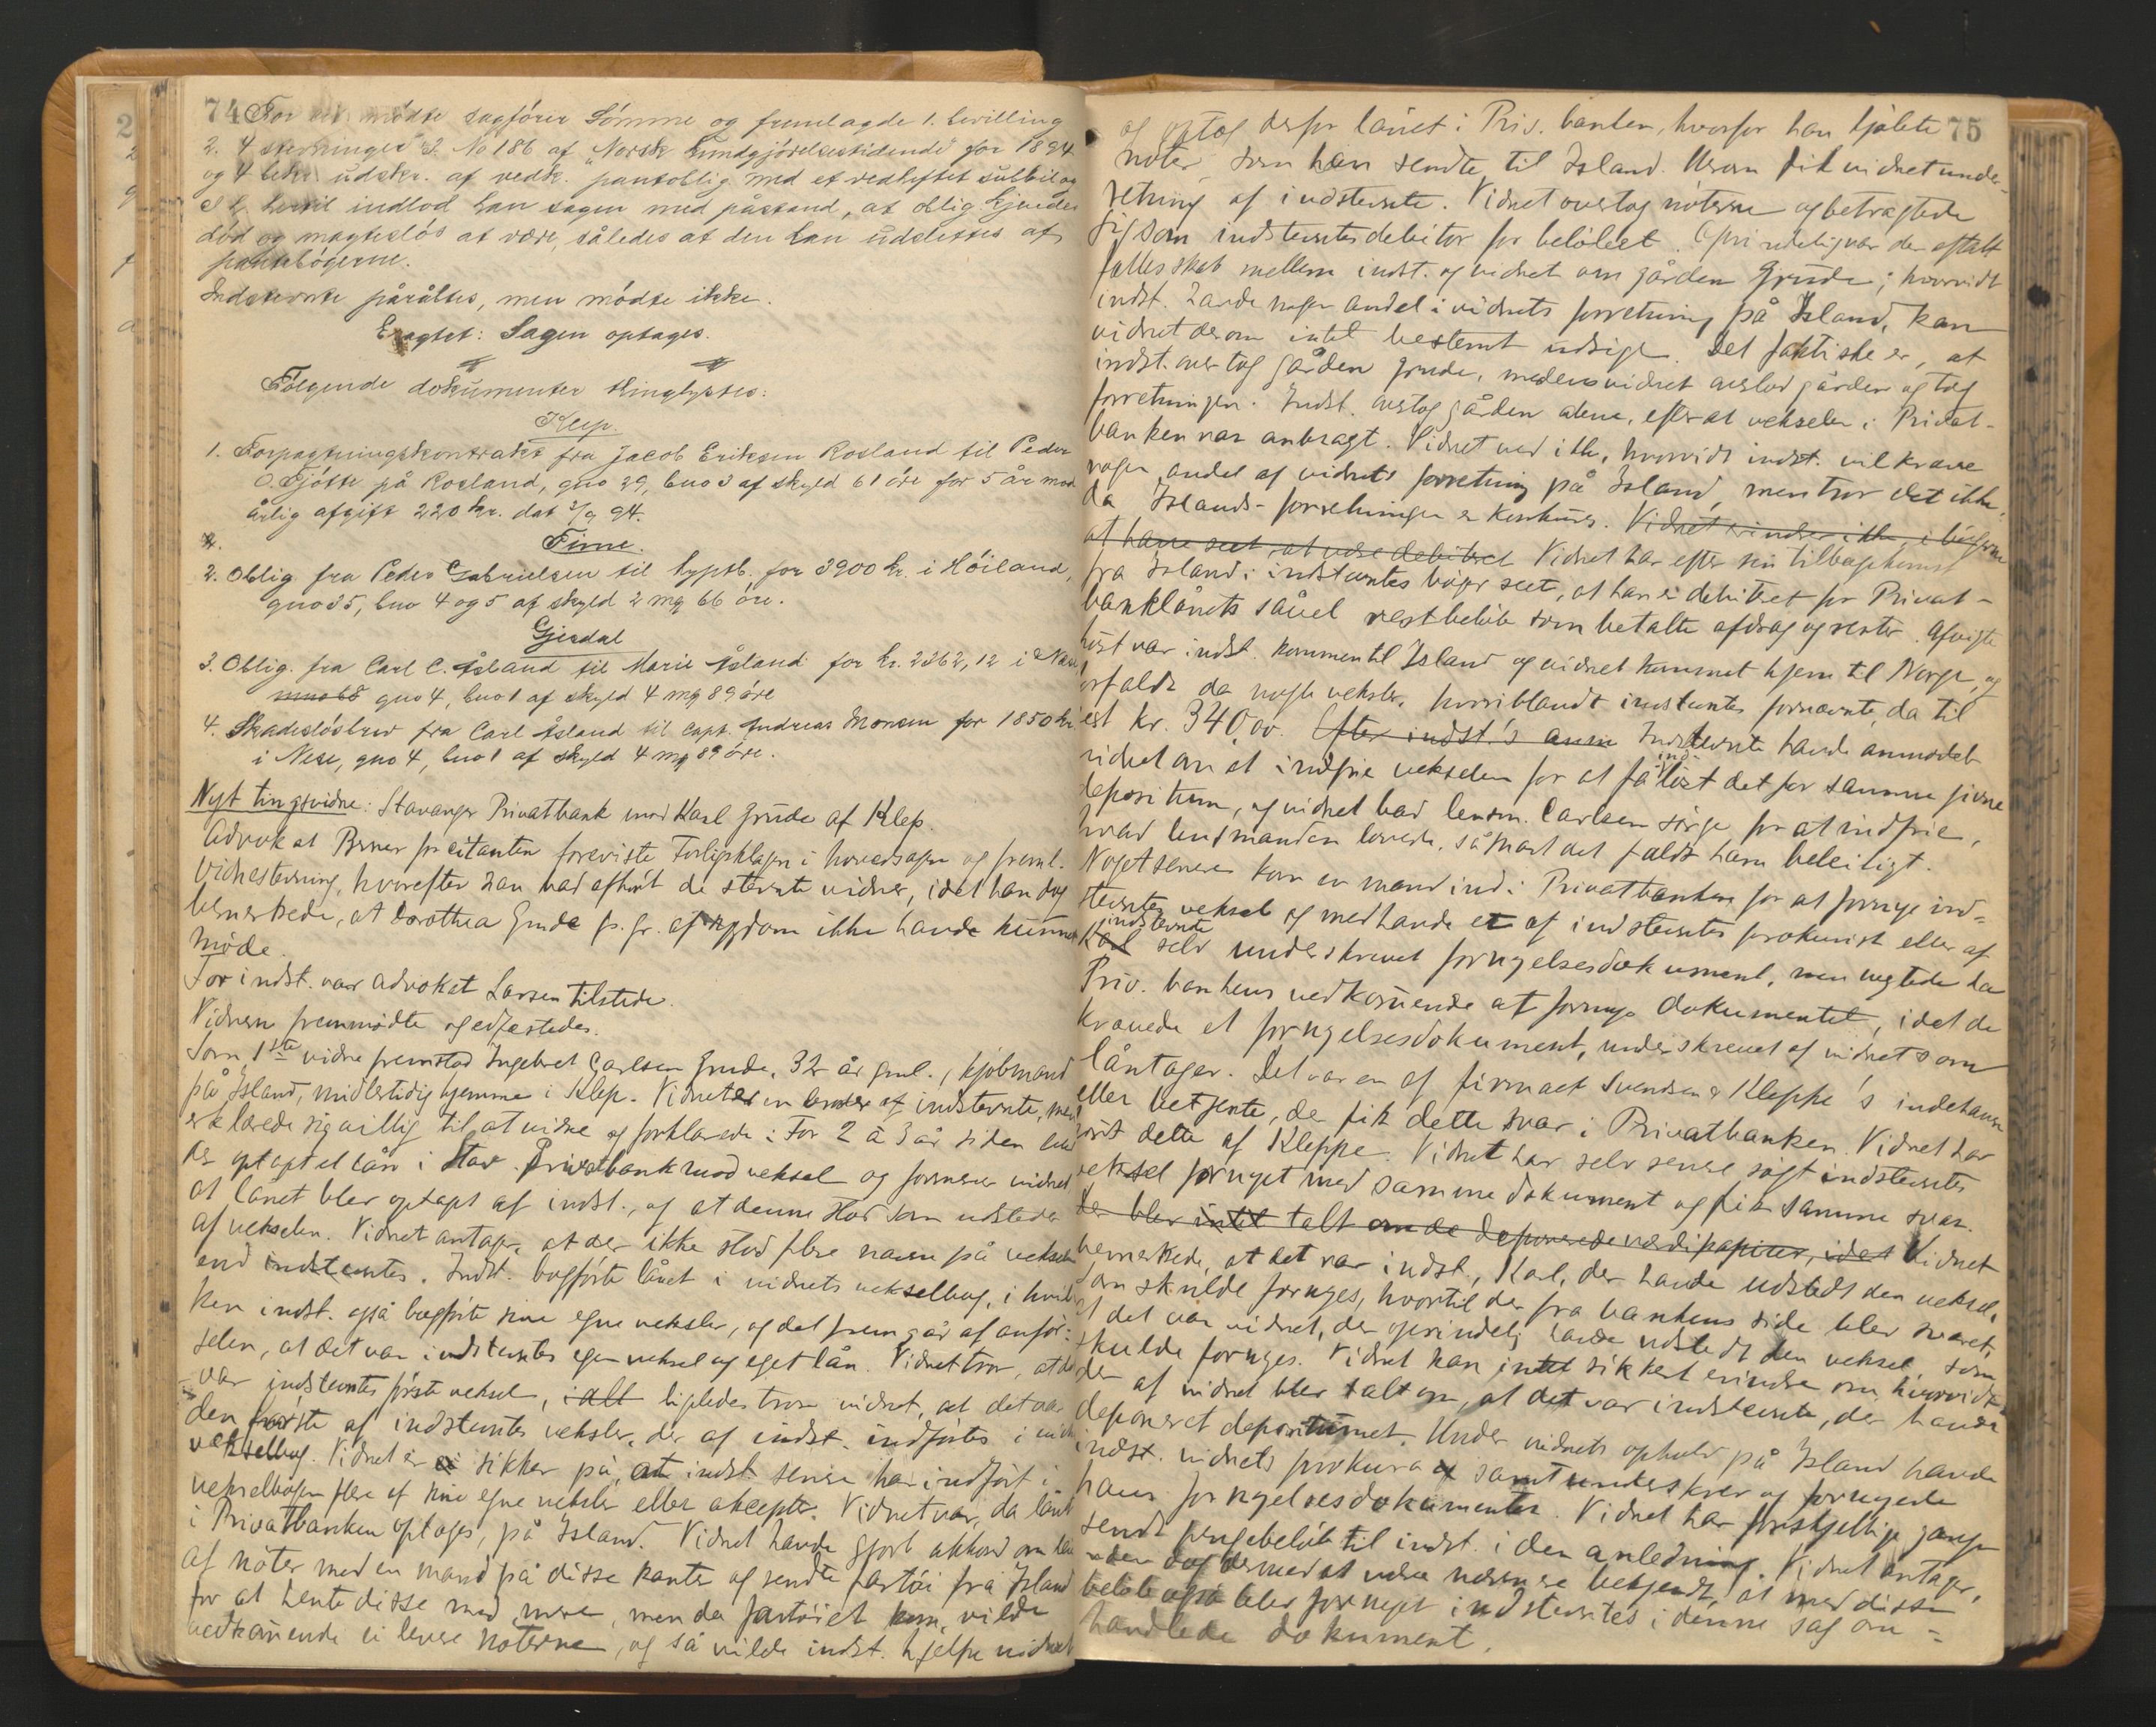 74
For mødte sagfører Sömme og fremlagde 1. bevilling
2. 4 stevninger 3. No 186 af "Norsk Kundgjörelsestidende" for 1894
og 4 bekr. udskr. af vedk. pantoblig. med et vedheftet
indlod han sagen med påstand, at oblig. kjendes
død og magteslös at være, således at den kan udslettes af
pantebögerne.
Indstevnte påråbtes, men mödte ikke.
Eragtet: Sagen optages.
Følgende dokumenter thinglystes:
Klep.
1. Forpagtningskontrakt fra Jacob Eriksen Rosland til Peder
O. Tjøtte på Rosland, gno 29, bno 3 af skyld 61 öre for 5 år mod
årlig afgift 220 kr. dat 3/9 94.
Time.
2. Oblig. fra Peder Gabrielsen til hyptb. for 3900 kr. i Höiland,
gno 35, bno 4 og 5 af skyld 2 mq 66 öre.
Gjesdal
3. Oblig. fra Carl C. Åsland til Marie Åsland for kr. 2362,12 i Nese
gno 4, bno 1 af skyld 4 mq 89 öre
4. Skadeslösbrev fra Carl Åsland til capt. Andreas Monsen for 1850 kr.
i Nese, gno 4, bno 1 af skyld 4 mq 89 öre.
Nyt tingsvidne: Stavanger Privatbank mod Karl Grude af Klep.
Advokat Berner for citanten foreviste Forligsklagen i hovedsagen og freml.
Vidnestevning, hvorefter han bad afhørt de stevnte vidner, idet han dog
bemerkede, at Dorothea Grude p. gr. af sygdom ikke havde kunnet
møde.
For indst. var advokat Larsen tilstede.
Vidnerne fremmødte og edfæstedes.
Som 1ste vidne fremstod Ingebret Carlsen Grude, 32 år gml., kjøbmand
på Island, midlertidig hjemme i Klep. Vidnet er en broder af indstevnte, men
erklærede sig villig til at vidne og forklarede: For 2 à 3 år siden blev
der optaget et lån i Stav. Privatbank mod veksel og formener vidnet
at lånet blev optaget af indst., og at denne stod som udsteder
af vekselen. Vidnet antager, at der ikke stod flere navne på vekselen
end indstevntes. Indst. bogførte lånet i vidnets vekselbog, i hvil-
ken indst. også bogførte sine egne veksler, og det fremgår af anför-
selen, at det var indstevntes egen veksel og eget lån. Vidnet tror, at det
var indstevntes første veksel, ialt ligeledes tror vidnet, at det var
den første af indstevntes veksler, der af indst. indførtes i vidnets
vekselbog. Vidnet er ei sikker på, at indst. senere har indført i
vekselbogen flere af sine egne veksler eller aksepter. Vidnet var, da lånet
i Privatbanken optoges, på Island. Vidnet havde gjort akkord om køb
af nöter med en mand på disse kanter og sendte fartöi fra Island
for at hente disse med mere, men da fartöiet kom, vilde
vedkommende ei levere nöterne, og så vilde indst. hjelpe vidnet
75
og optog derfor lånet i Priv. banken, hvorfor han kjøbte
nöter, som han sendte til Island. Herom fik vidnet under-
retning af indstevnte. Vidnet overtog nöterne og betragtede
sig som indstevntes debitor for beløbet. Oprindelig var der aftalt
fællesskab mellem indst. og vidnet om gården Grude; hvorvidt
indst. havde nogen andel i vidnets forretning på Island, kan
vidnet derom intet bestemt udsige. Det faktiske er, at
indst. overtog gården Grude, medens vidnet overlod gården og tog
forretningen. Indst. overtog gården alene, efter at vekselen i Privat-
banken var anbragt. Vidnet ved ikke, hvorvidt indst. vil kræve
nogen andel af vidnets forretning på Island, men tror det ikke,
da Islands-forretningen er konkurs. Vidnet erindrer ikke, i bøgerne
at have seet, at være debiteret Vidnet har efter sin tilbagekomst
fra Island i indstevntes bøger seet, at han er debiteret for Privat-
banklånets såvel restbeløb som betalte afdrag og renter. Afvigte
høst var indst. kommen til Island og vidnet kommet hjem til Norge, og
forfaldt da nogle veksler, hvoriblandt indstevntes fornævnte, da til
rest kr. 340,00. Efter indst.'s anm Indstevnte havde anmodet
vidnet om at indfrie vekselen for at få indløst det for samme givne
depositum, og vidnet bad lensm. Carlsen sørge for at indfrie,
hvad lensmanden lovede, såsnart det faldt ham beleiligt.
Noget senere kom en mand ind i Privatbanken for at fornye ind-
stevntes veksel og medhavde et af indstevntes prokurist eller af
indstevnte
Karl selv underskrevet fornyelsesdokument, men negtede da
Priv. bankens vedkommende at fornye dokumentet, idet de
krævede et fornyelsesdokument, underskrevet af vidnet som
låntager. Det var en af firmaet Svendsen & Kleppe's indehavere
eller betjente, der fik dette svar i Privatbanken. Vidnet har
hørt dette af Kleppe. Vidnet har selv senere søgt indstevntes
veksel fornyet med samme dokument og fik samme svar.
Der blev intet talt om de deponerede værdipapirer, idet Vidnet
bemerkede, at det var indst., Karl, der havde udstedt den veksel,
som skulde fornyes, hvortil der fra bankens side blev svaret,
at det var vidnet, der oprindelig havde udstedt den veksel, som
skulde fornyes. Vidnet kan intet sikkert erindre om, hvorvidt
der af vidnet blev talt om, at det var indstevnte, der havde
deponeret depositumet. Under vidnets ophold på Island havde
indst. vidnets prokura og samt underskrev og fornyede
hans fornyelsesdokumenter. Vidnet har forskjellige gange
sendt pengebeløb til indst. i den anledning. Vidnet antager,
uden dog dermed at være nærmere bekjendt, at med disse
beløb også blev fornyet indstevntes i denne sag om-
handlede dokument.